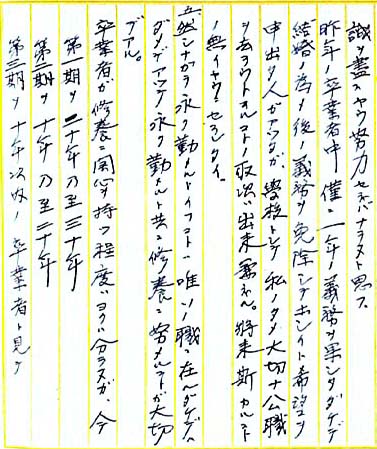 誠ヲ盡スヤウ努力セネバナラヌト思フ
昨年ノ卒業者中、僅ニ一年ノ義務ヲ果シタダケデ
結婚ノ為メ後ノ義務ヲ免除シテホシイト希望ヲ
申出タ人ガアツタガ、學校トシテ私ノタメ大切ナ公職
ヲ去ラウトスルコトノ取次ハ出来兼ネル。将来斯カルコト
ノ無イヤウニセラレタイ。
然シナガラ永ク勤メルトイフコトハ唯ソノ職ニ在ルダケデハ
ダメデアツテ永ク勤メルト共ニ修養ニ努メルコトガ大切
デアル。
卒業者ガ修養ニ関心ヲ持ツ程度ハヨクハ分ラヌガ、今
第一期ヲ 二十年乃至三十年
第二期ヲ 十年乃至二十年
第三期ヲ 十年以内ノ卒業者ト見テ